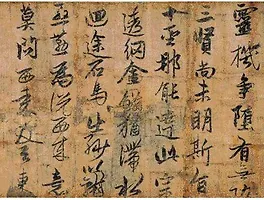 靈機爭墮有無功
三賢尚未明斯旨
十聖那能達此宗
透網金鱗猶滯水
迴途石馬出紗籠
慇懃為說西來意
莫問西來及與東